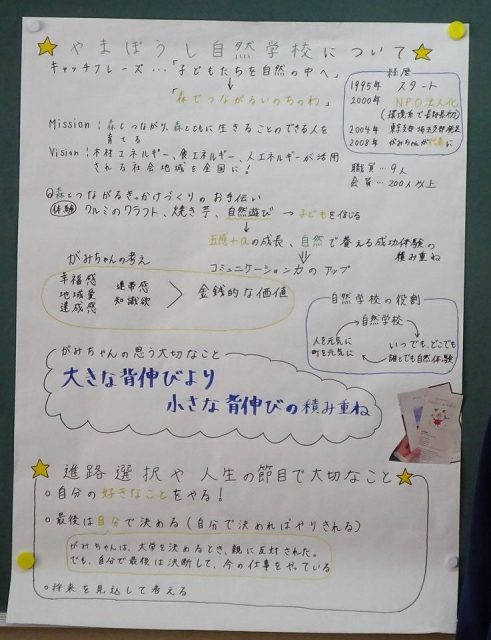 やまぼうし自然学校について
キャッチフレーズ…「子どもたちを自然の中へ」
↓
「森でつながるいのちのわ」
経歴
1995年 スタート
2000年 NPO法人化
(環境省で長野県初)
2004年 東京支部・埼玉支部発足
2008年 がみちゃんが代表に
職員…9人
会員…200人以上
Mission：森とつながり、森とともに生きることのできる人を
育てる
Vision：木材エネルギー、食エネルギー、人エネルギーが活用
される社会地域を全国に！
森とつながるきっかけづくりのお手伝い
体験 クルミのクラフト、焼き芋、自然遊び → 子どもを信じる
↓
五感+αの成長、自然で養える成功体験の
積み重ね
コミュニケーション力のアップ
がみちゃんの考え
幸福感 連帯感
地域愛 知識欲
達成感
> 金銭的な価値
自然学校の役割
自然学校
人を元気に
町を元気に
いつでも、どこでも
誰とでも自然体験
がみちゃんの思う大切なこと
大きな背伸びより
小さな背伸びの積み重ね
進路選択や人生の節目で大切なこと
○自分の好きなことをやる！
○最後は自分で決める(自分で決めればやりきれる)
がみちゃんは、大学を決めるとき、親に反対された。
でも、自分で最後は決断して、今の仕事をやっている
○将来を見込して考える